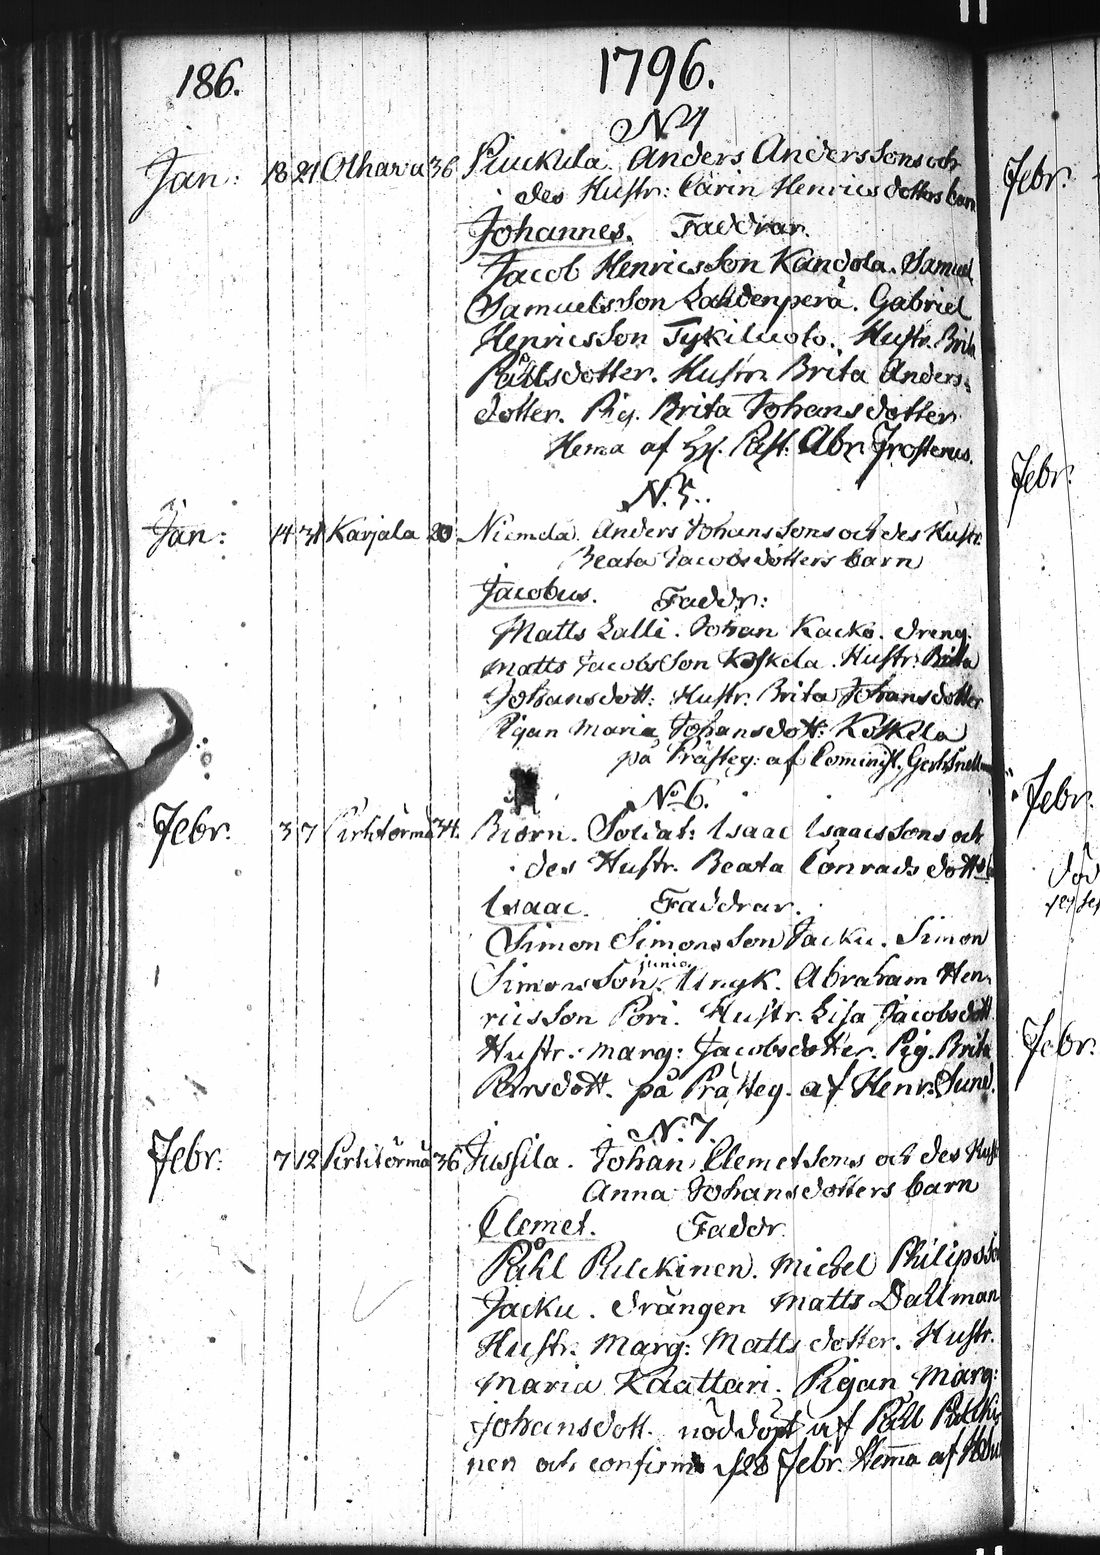 186.
1796.
N 4
Jan: 18 21 Olhava 36 Anders Anderssons och
des Hustr: Carin Henricsdotters barn
Johannes. Faddrar.
Jacob Henricsson Kandola. Samuel
Samuelsson Lahdenperä. Gabriel
Henricsson Tykiluoto. Hustr. Brita
Påhlsdotter. Hustr. Brita Anders-
dotter. Pig. Brita Johansdotter
Hema af Past: Abr. Frosterus.
N. 5.
Jan: 14 31 Karjala 20 Niemela Anders Johanssons och des Hustr.
Beata Jacobsdotters barn
Jacobus. Faddr:
Matts Lalli. Johan Kacko. dreng.
Matts Jacobsson Koskela. Hustr: Brita
Johansdott: Hustr. Brita Johansdotter
Pigan Maria Johansdott: Koskela
på Prästeg: af Cominist.
No 6.
Febr. 3 7 34. Biörn. Soldat: Isaac Isaacssons och
des Hustr. Beata Conradsdott
Isaac. Faddrar.
Simon Simonsson Jacku. Simon
Simonsson junior Unyk. Abraham Hen-
ricsson Pori. Hustr. Lisa Jacobsdott
Hustr. Marg: Jacobsdotter. Pig. Brita
Persdott. på Prästeg. af Henr. Sund.
N. 7.
Febr. 7 12 36 Jussila. Johan Clemetsons och des Hustr
Anna Johansdotters barn
Clemet. Faddr.
Påhl Pulckinen. Michel Philipsson
Jacku. drängen Matts Dallman
Hustr. Marg: Matts dotter. Hustr.
Maria Kaattari. Pigan Marg:
Johansdott. nöddöpt af Påhl Pulcki-
nen och confirm d 28 Febr. Hema af
Febr.
Febr.
Febr.
död
Febr.